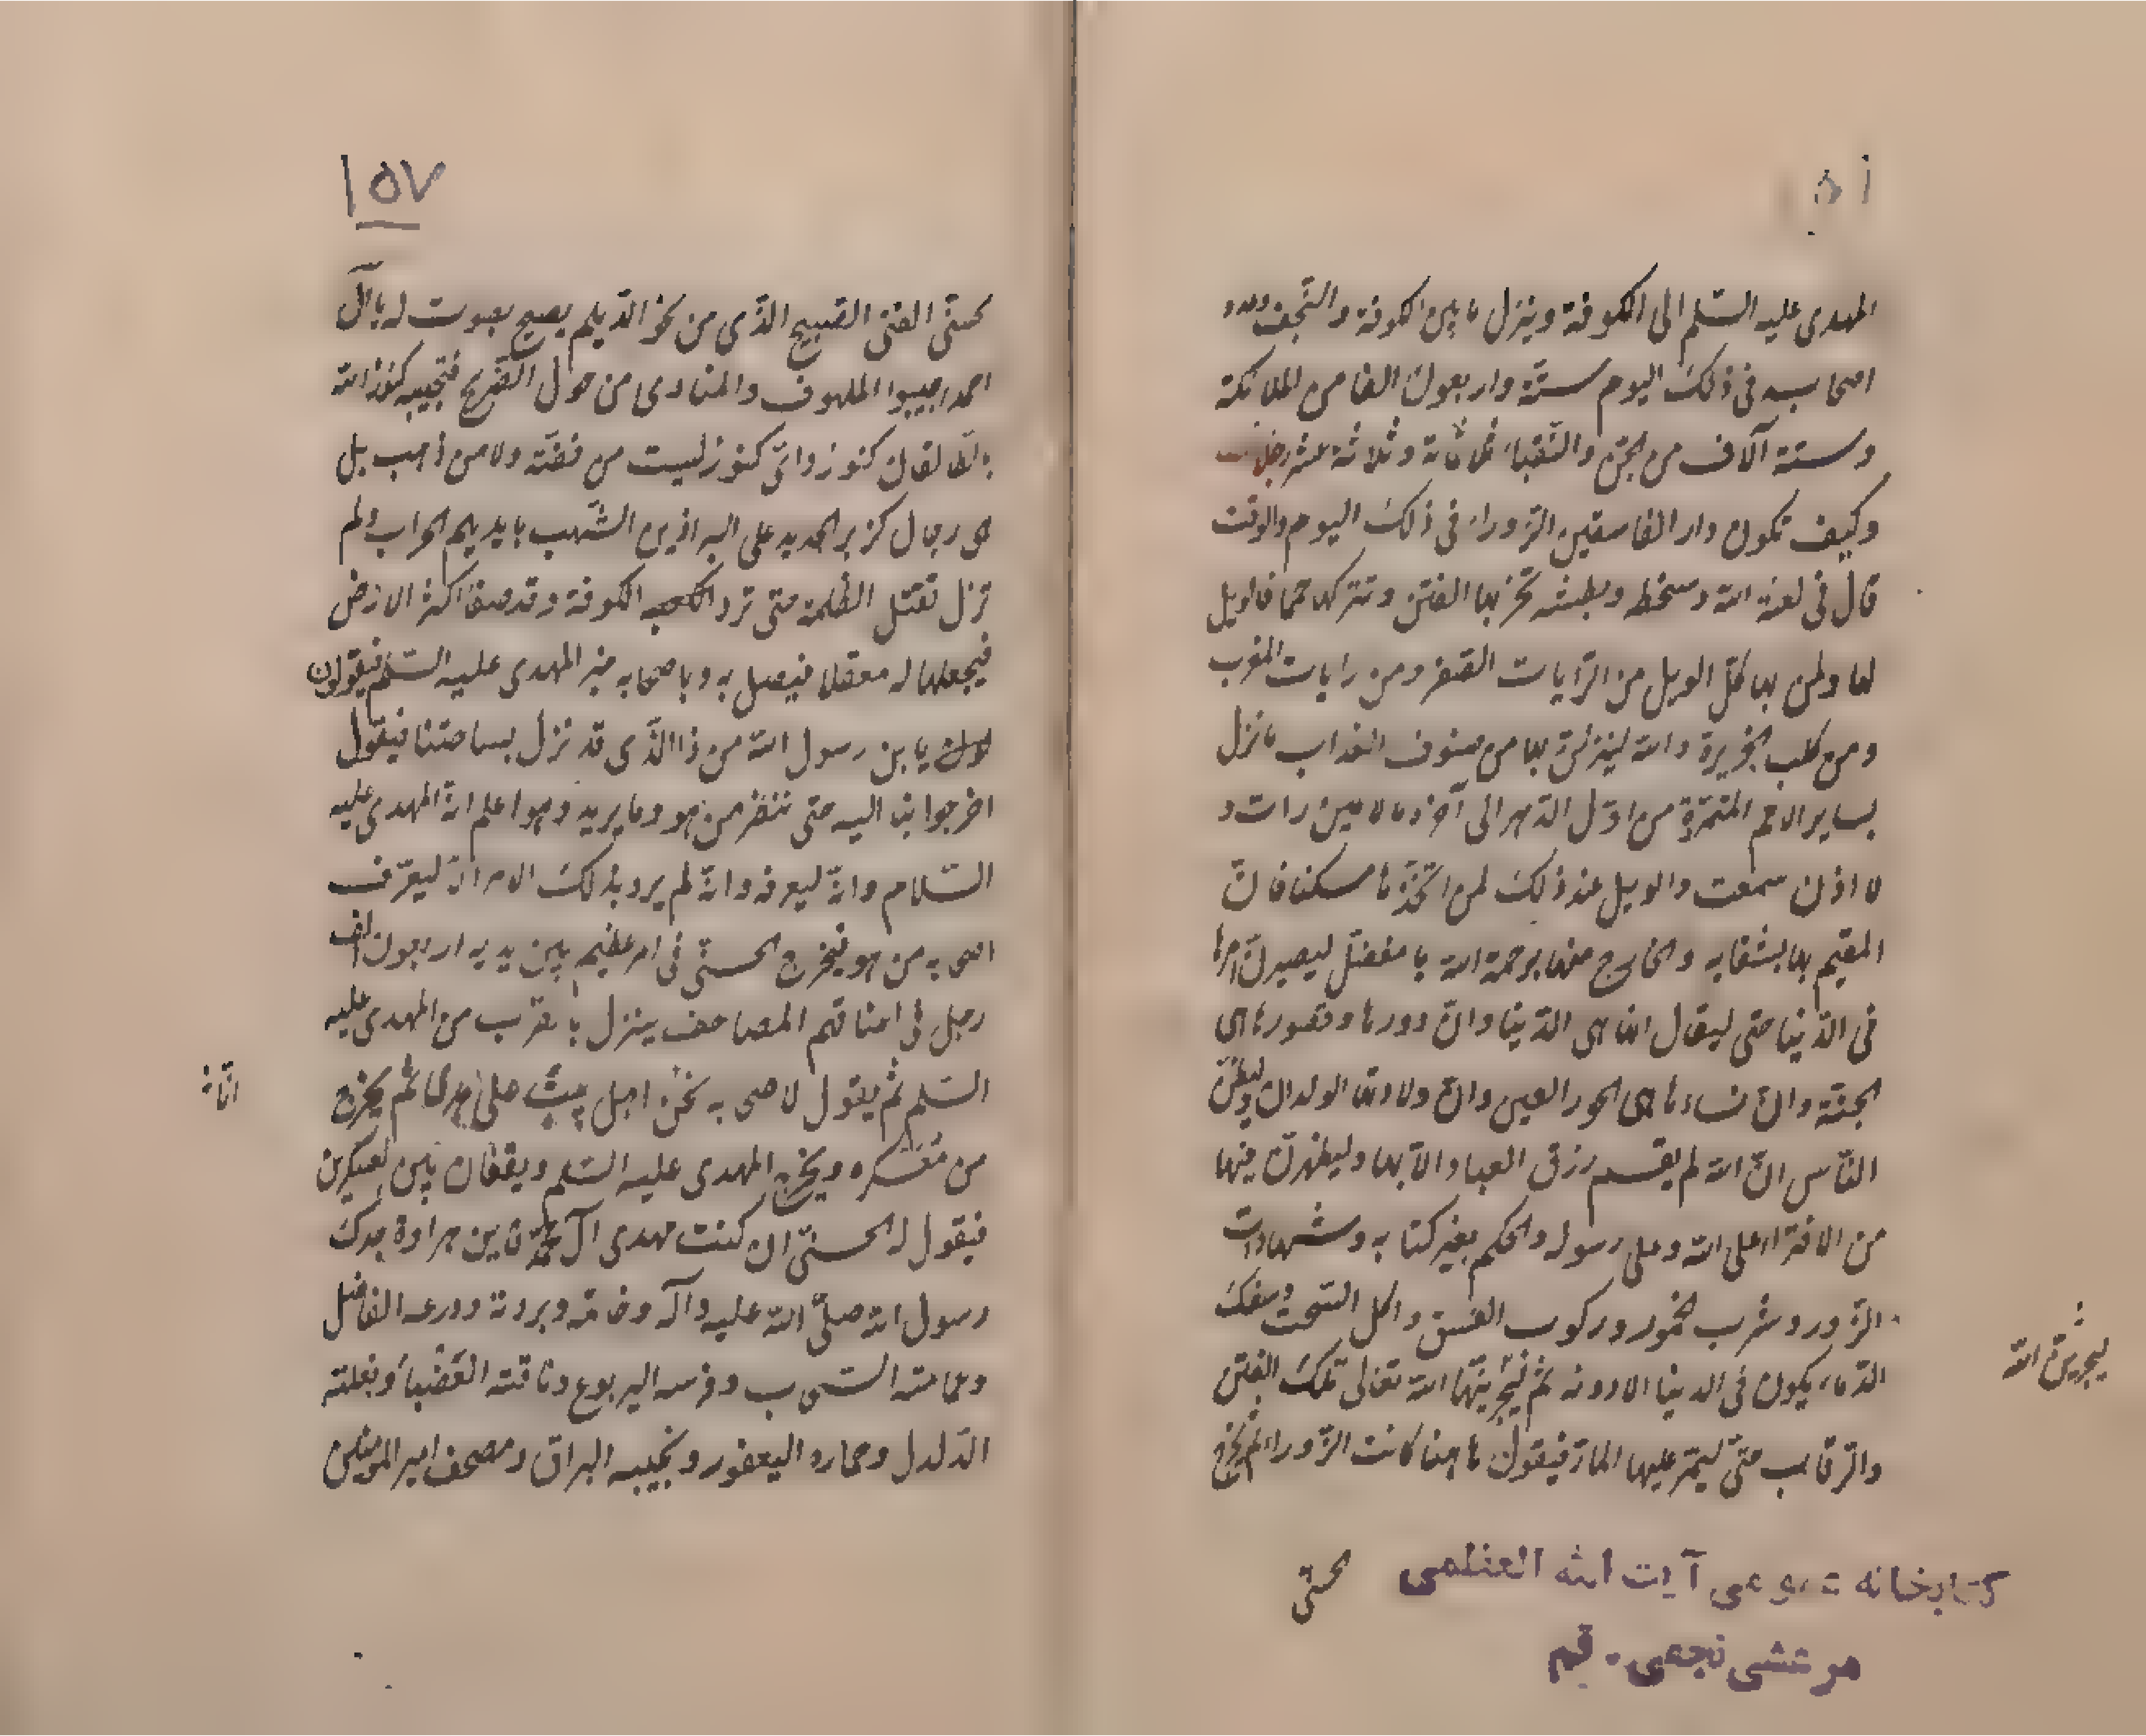 المهدى عليه السّلم الى الكوفة وينزل ما بين الكوفة والنّجف وعدد
اصحابه فى ذلك اليوم ستّة واربعون الفا من الملائكة
وستة آلاف من الجنّ والنّقباء ثلثمائة وثلاثة عشر رجلا
وكيف تكون دار الفاسقين الزّوراء فى ذلك اليوم والوقت
قال فى لعنة اللّه وسخطه وبطشه تخربها الفتن وتتركها حمما فالويل
لها ولمن بها كلّ الويل من الرّايات الصّفر ومن رايات المغرب
ومن كلب الجزيرة واللّه لينزلنّ بها من صنوف العذاب ما نزل
بساير الامم المتمرّدة من اوّل الدّهر الى آخره ما لا عين رات و
لا اذن سمعت والويل عند ذلك لمن اتّخذها مسكنا فانّ
المقيم بها بشقايه والخارج منها برحمة اللّه يا مفضّل ليصيرنّ امرها
فى الدّنيا حتى ليقال انها هى الدّنيا وانّ دورها وقصورها هى
الجنّة وانّ نساءها هى الحور العين وانّ ولادتها الولدان وليظنّ
النّاس انّ اللّه لم يقسم رزق العباد الّا بها وليظهرنّ فيها
من الافتراء على اللّه وعلى رسوله والحكم بغير كتابه وشهادات
الزّور وشرب الخمور وركوب الفسق واكل السّحت وسفك
الدّماء ما يكون فى الدنيا الا دونه ثم اللّه تعالى تلك الفتن
والرّقاب حتّى ليمرّ عليها المارّ فيقول هاهنا كانت الزّوراء ثم يخرج
الحسنىّ
كتابخانه عمومى آيت الله العظمى
مرعشى نجفى - قم
١٥٧
الحسنىّ الفتى الصّبيح الذّى من نحو الدّيلم يصيح بصوت له يا آل
احمد اجيبوا الملهوف والمنادى من حول الضّريح فتجيبه كنوز اللّه
بالطّالقان كنوز واىّ كنوز ليست من فضّة ولا من ذهب بل
هى رجال كزبر الحديد على البراذين الشّهب بايديهم الحراب ولم
تزل تقتل الظّلمة حتى ترد الكوفة وقد صفا اكثر الارض
فيجعلها له معقلا فيصل به وباصحابه خبر المهدى عليه السّلم فيقولون
له يا بن رسول اللّه من ذا الذّى قد نزل بساحتنا فيقول
اخرجوا بنا اليه حتى ننظر من هو وما يريد وهو اعلم انّه المهدى عليه
السّلام وانّه ليعرفه وانّه لم يرد بذلك الامر الّا ليعرّف
اصحابه من هو فيخرج الحسنىّ فى امر عظيم بين يديه اربعون الف
رجل فى اعناقهم المصاحف ينزل بالقرب من المهدى عليه
السّلم ثمّ يقول لاصحابه نحن اهل بيت على هدى ثم يخرج
من معسكره ويخرج المهدى عليه السّلم ويقفان بين العسكرين
فيقول له الحسنىّ ان كنت مهدى آل محمّد فاين هراوة جدك
رسول اللّه صلّى اللّه عليه وآله وخاتمه وبردته ودرعه الفاضل
وعمامته السّحاب وفرسه اليربوع وناقته العضباء وبغلته
الدّلدل وحماره اليعفور ونجيبه البراق ومصحف امير المومنين